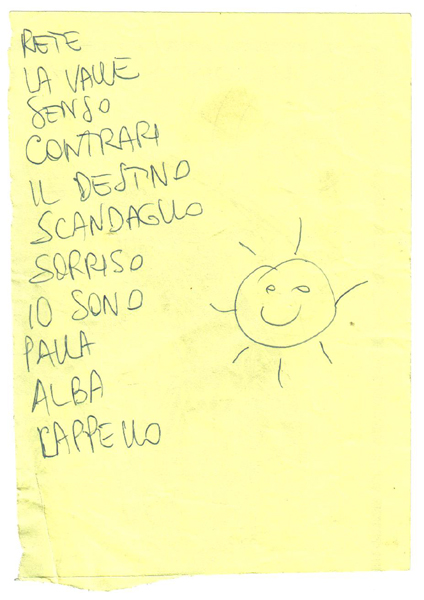 RETE
LA VALLE
SENSO
CONTRARI
IL DESTINO
SCANDAGLIO
SORRISO
IO SONO
PALLA
ALBA
CAPPELLO